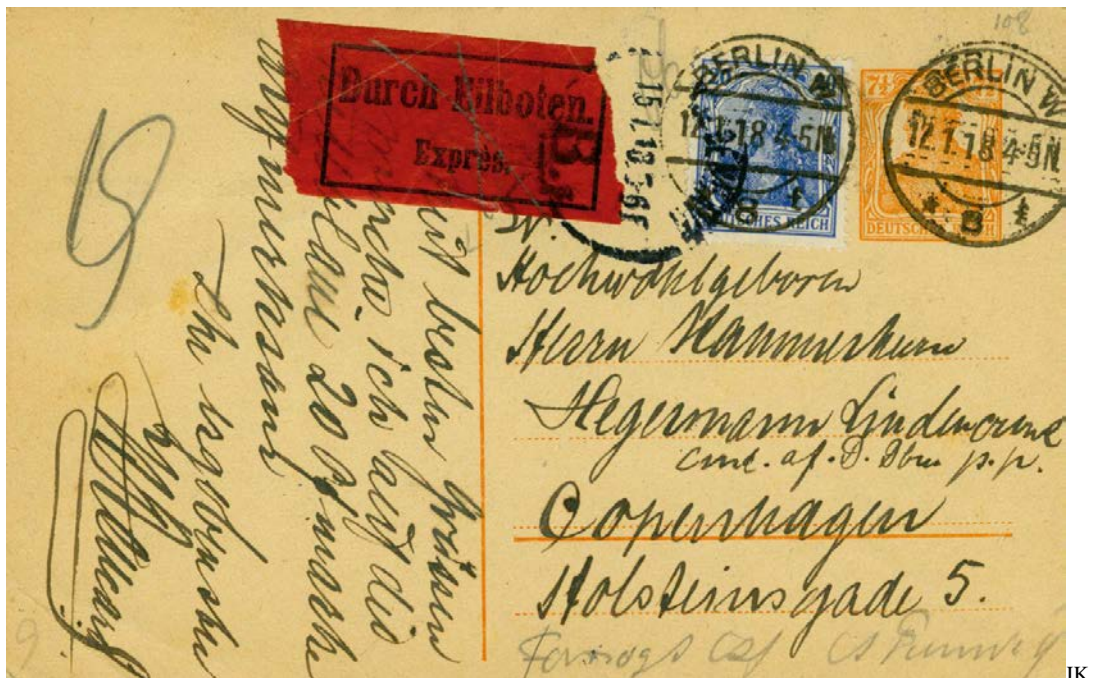 198
Durch Eilboten.
Expres.
B.
15.1.18. 3-6E
BERLIN W
12.1.18 4-5N
8
DEUTSCHES REICH
7½
BERLIN W
12.1.18 4-5N
8
DEUTSCHES REICH
Hochwohlgeboren
Herrn Kammerherrn
Hegermann Lindencrone
Cmd. af. D. Dbn. p.p.
Copenhagen
Holsteinsgade 5.
Mit besten Grüssen
mache ich auf die
blaue 20 Pf marke
aufmerksam
Ihr ergebenster
JK